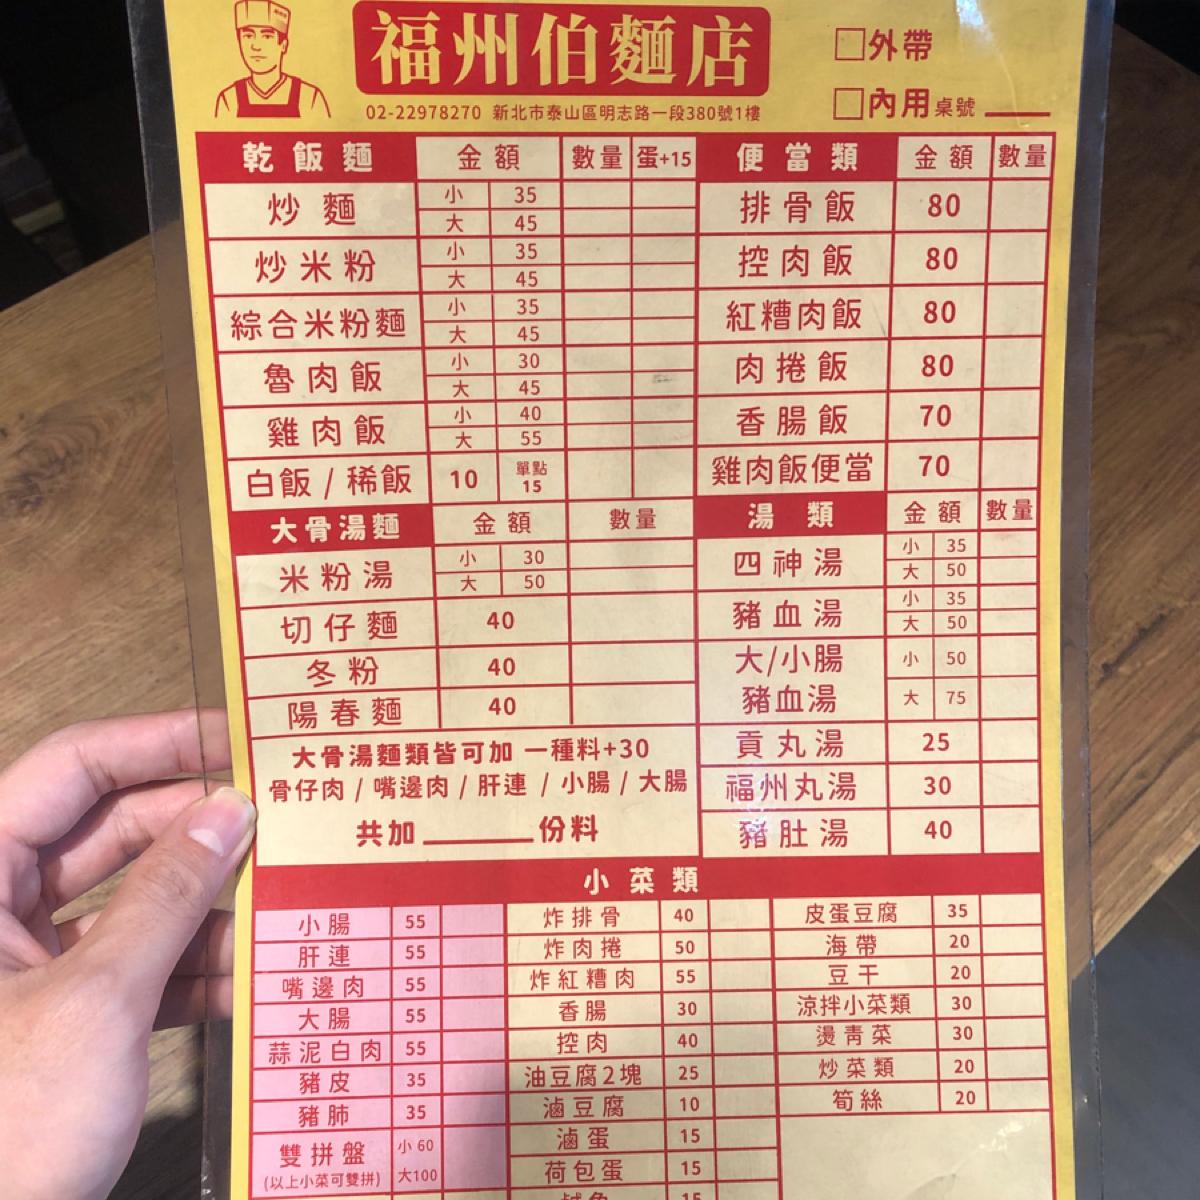 福州伯麵店
□外帶
02-22978270 新北市泰山區明志路一段380號1樓
□內用 桌號____
乾飯麵 金額 數量 蛋+15
炒麵 小 35
大 45
炒米粉 小 35
大 45
綜合米粉麵 小 35
大 45
魯肉飯 小 30
大 45
雞肉飯 小 40
大 55
白飯/稀飯 10 單點15
便當類 金額 數量
排骨飯 80
控肉飯 80
紅糟肉飯 80
肉捲飯 80
香腸飯 70
雞肉飯便當 70
大骨湯麵 金額 數量
米粉湯 小 30
大 50
切仔麵 40
冬粉 40
陽春麵 40
大骨湯麵類皆可加 一種料+30
骨仔肉/嘴邊肉/肝連/小腸/大腸
共加______份料
湯類 金額 數量
四神湯 小 35
大 50
豬血湯 小 35
大 50
大/小腸 小 50
豬血湯 大 75
貢丸湯 25
福州丸湯 30
豬肚湯 40
小菜類
小腸 55
肝連 55
嘴邊肉 55
大腸 55
蒜泥白肉 55
豬皮 35
豬肺 35
雙拼盤 小60
(以上小菜可雙拼) 大100
炸排骨 40
炸肉捲 50
炸紅糟肉 55
香腸 30
控肉 40
油豆腐2塊 25
滷豆腐 10
滷蛋 15
荷包蛋 15
鹹魚 15
皮蛋豆腐 35
海帶 20
豆干 20
涼拌小菜類 30
燙青菜 30
炒菜類 20
筍絲 20